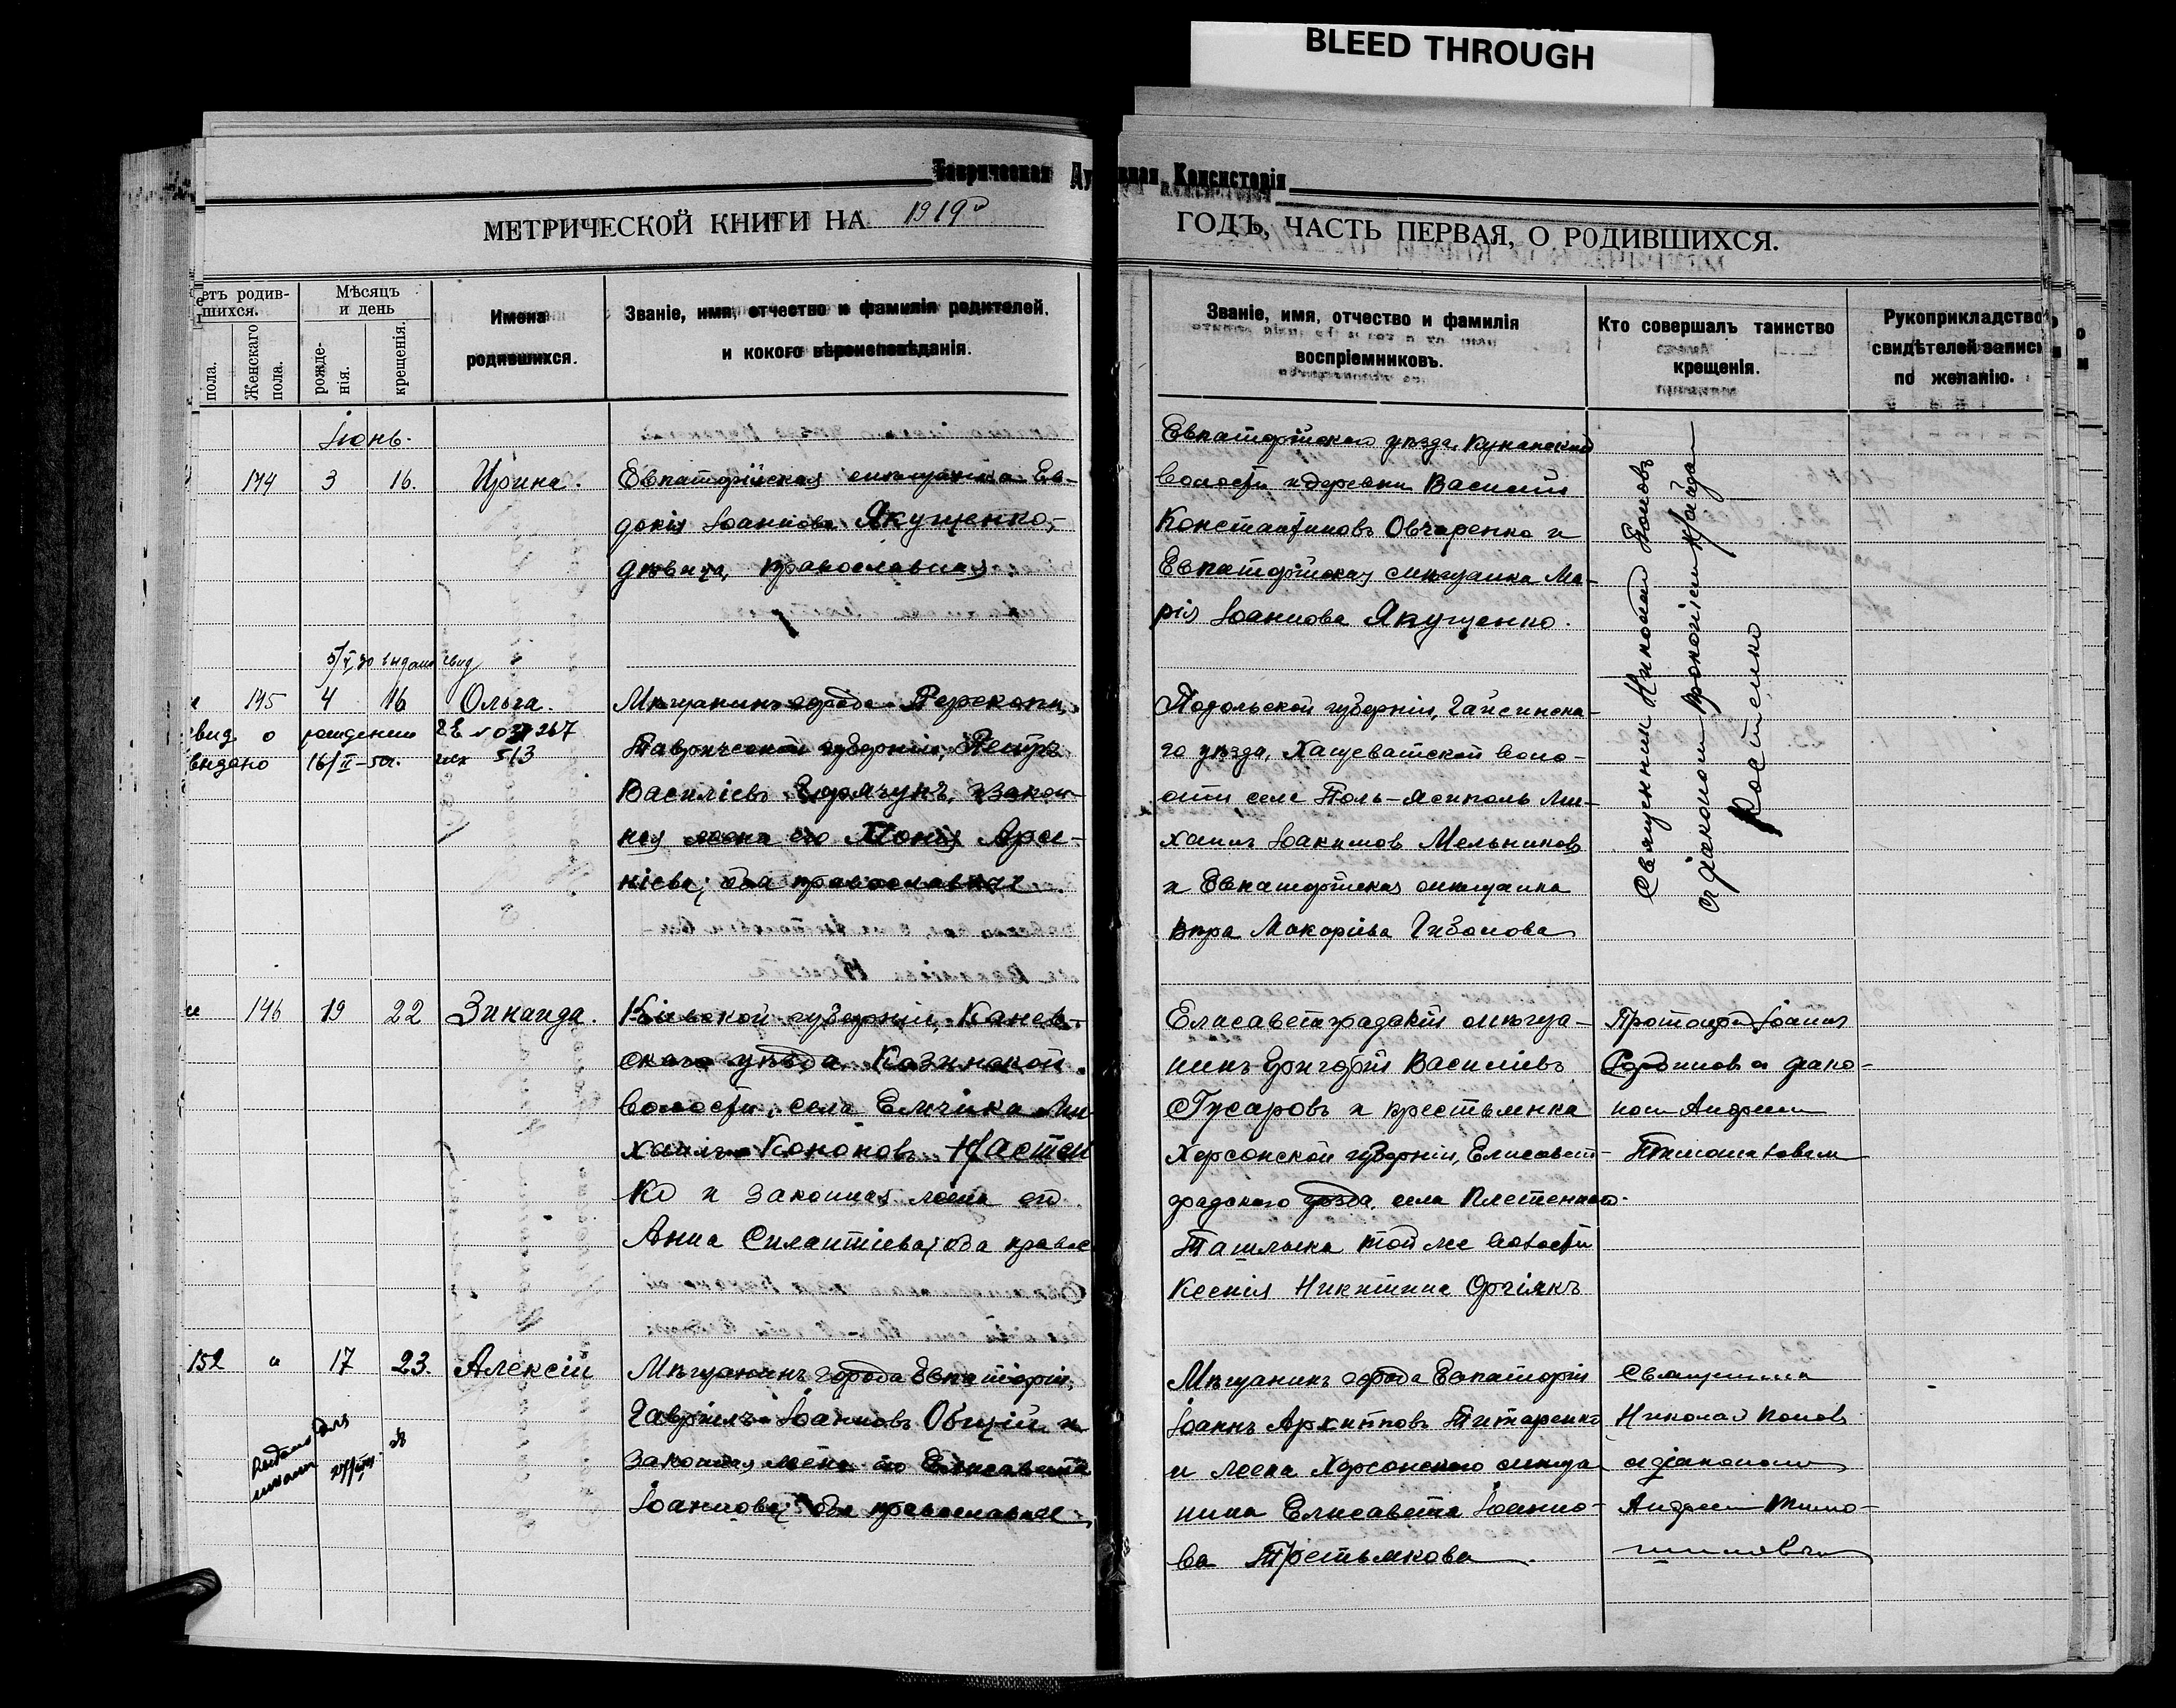 BLEED THROUGH
Таврическая Духовная Консисторія
МЕТРИЧЕСКОЙ КНИГИ НА 1919й ГОДЪ, ЧАСТЬ ПЕРВАЯ, О РОДИВШИХСЯ.
етъ родив-
шихся.
пола.
Женскаго
пола.
Мѣсяцъ
и день
рожде-
нія.
крещенія.
Имена
родившихся.
Званіе, имя, отчество и фамилія родителей,
и какого вѣроисповѣданія.
Званіе, имя, отчество и фамилія
воспріемниковъ.
Кто совершалъ таинство
крещенія.
Рукоприкладство
свидѣтелей записи
по желанію.
Іюнь.
144 3 16. Ирина.
Евпаторійская мѣщанка Ев-
докія Іоаннова Якущенко,
дѣвица, православная
Евпаторійскаго уѣзда,
волости и деревни Василій
Константиновъ Овчаренко и
Евпаторійская мѣщанка Ма-
рія Іоаннова Якущенко.
Священникъ Николай Поповъ
съ діакономъ
Костенко
выдано свид
145 4 16 Ольга.
свид о рождении
выдано 16/II-50г.
513
Мѣщанинъ города Перекопа,
Таврической губерніи, Петръ
Василіевъ Горячунъ, и закон-
ная жена его
оба православные
Подольской губерніи, Гайсинска-
го уѣзда, Хащеватской воло-
сти села Ми-
хаилъ Іоакимов Мельников
и Евпаторійская мѣщанка
Вѣра Макаріева
146 19 22 Зинаида.
Кіевской губерніи, Канев-
скаго уѣзда, Козинской
волости, села Емчиха Ми-
хаилъ Кононовъ Настен
ко и законная жена его
Анна Силантіева, оба правос
Елисаветградскій мѣща-
нинъ Григорій Василіевъ
Гусаровъ и крестьянка
Херсонской губерніи, Елисавет-
градскаго уѣзда, села Плетеннаго
Ташлыка той же волости
Ксенія Никитина
Протоіерей Іоаннъ
и діако-
ном Андреем
152 " 17 23. Алексій
Мѣщанинъ города Евпаторіи,
Гавріилъ Іоанновъ Общій и
законная жена его Елисавета
Іоаннова, оба православные
Мѣщанинъ города Евпаторіи
Іоаннъ Архиповъ Титаренко
и жена Херсонскаго мѣща
нина Елисавета Іоанно-
ва Третьякова
Священник
Николай Попов
с діаконом
Андреем Тимо-